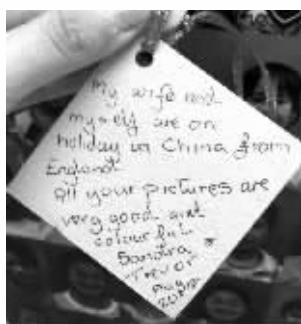 My wife and
myself are on
holiday in China from
England
All your pictures are
very good and
colourful
Sandra &
Trevor
Aug